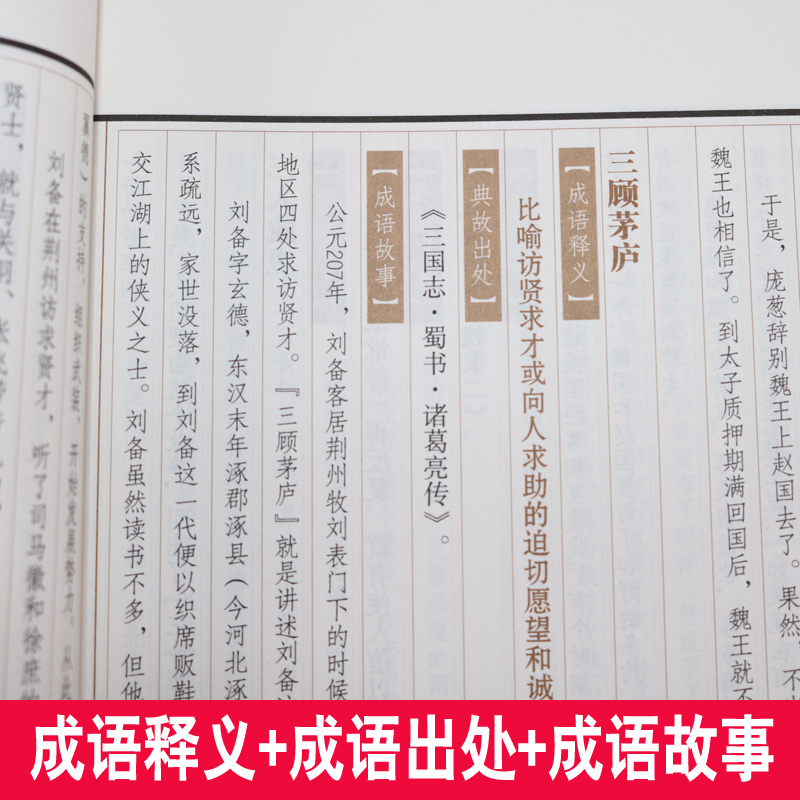 于是，庞葱辞别魏王上赵国去了。果然，不
魏王也相信了。到太子质押期满回国后，魏王就不
三顾茅庐
【成语释义】
比喻访贤求才或向人求助的迫切愿望和诚
【典故出处】
《三国志·蜀书·诸葛亮传》。
【成语故事】
公元207年，刘备客居荆州牧刘表门下的时候
地区四处求访贤才。『三顾茅庐』就是讲述刘备
刘备字玄德，东汉末年涿郡涿县（今河北涿
系疏远，家世没落，到刘备这一代便以织席贩鞋
交江湖上的侠义之士。刘备虽然读书不多，但他
的支持，组织武装，开始发展势力。从此
刘备在荆州访求贤才，听了司马徽和徐庶
贤士，就与关羽、张飞
成语释义+成语出处+成语故事